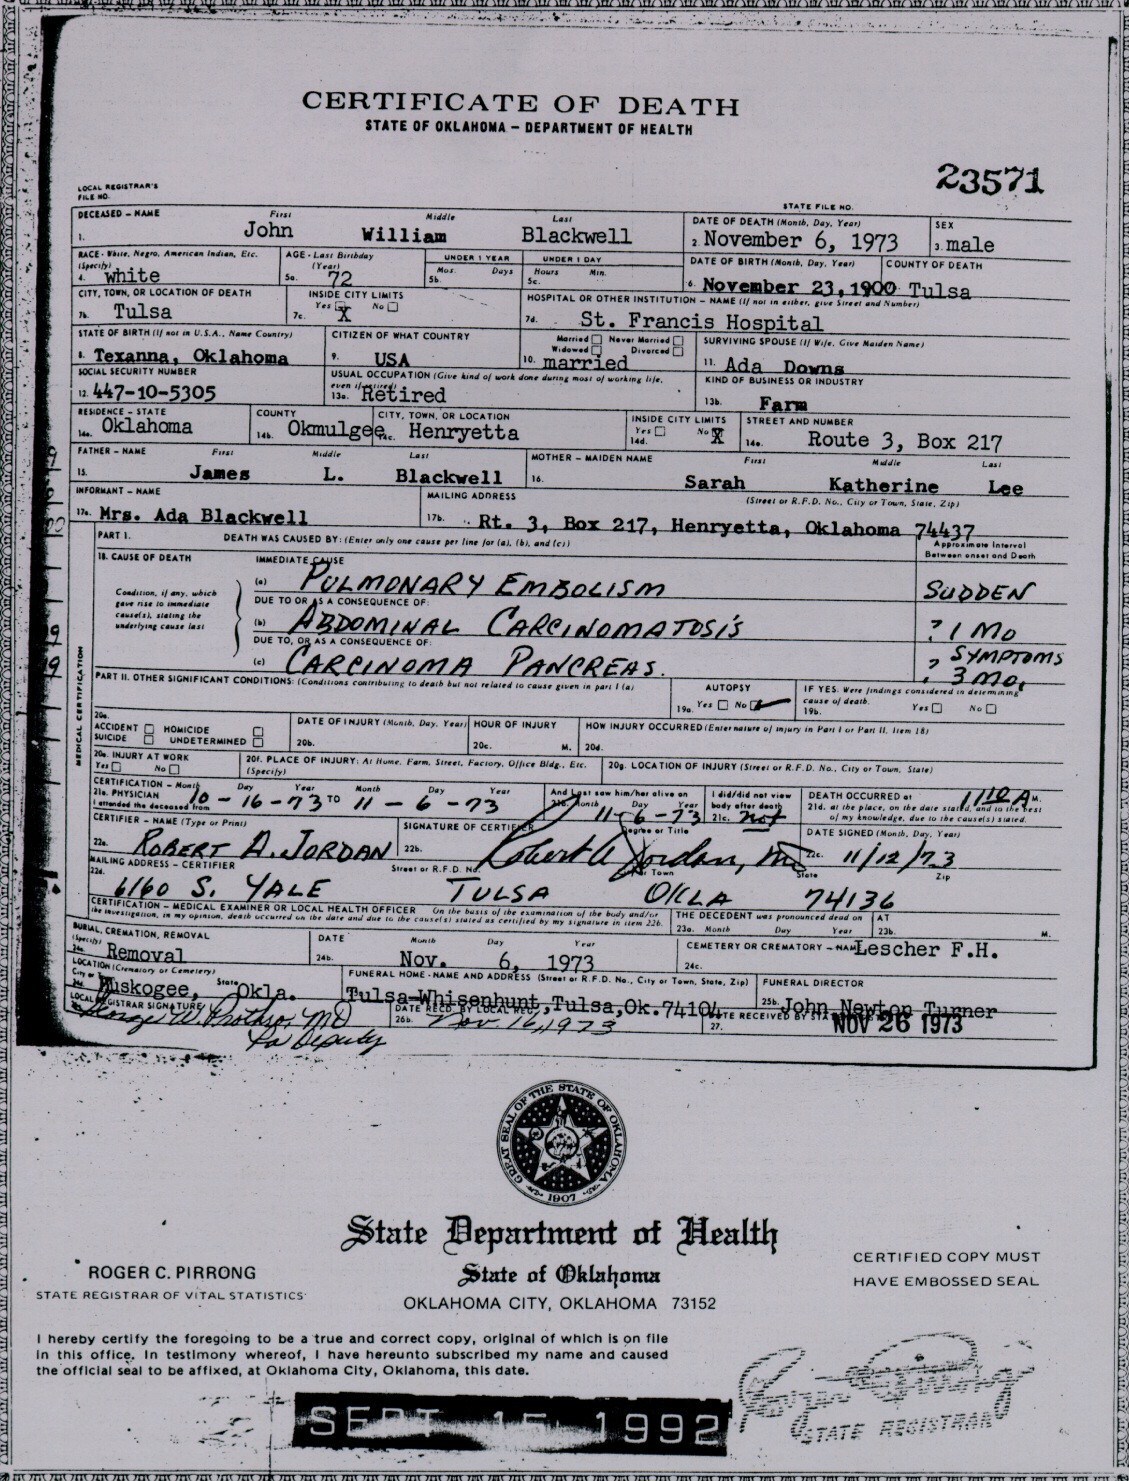 CERTIFICATE OF DEATH
STATE OF OKLAHOMA – DEPARTMENT OF HEALTH
23571
LOCAL REGISTRAR'S
FILE NO.
STATE FILE NO.
DECEASED – NAME First Middle Last DATE OF DEATH (Month, Day, Year) SEX
1. John William Blackwell 2. November 6, 1973 3. male
RACE - White, Negro, American Indian, Etc. (Specify) AGE - Last Birthday (Year) UNDER 1 YEAR UNDER 1 DAY DATE OF BIRTH (Month, Day, Year) COUNTY OF DEATH
4. white 5a. 72 5b. Mos. Days 5c. Hours Min. 6. November 23, 1900 Tulsa
CITY, TOWN, OR LOCATION OF DEATH INSIDE CITY LIMITS HOSPITAL OR OTHER INSTITUTION – NAME (If not in either, give Street and Number)
7b. Tulsa 7c. Yes X No 7d. St. Francis Hospital
STATE OF BIRTH (If not in U.S.A., Name Country) CITIZEN OF WHAT COUNTRY Married Never Married Widowed Divorced SURVIVING SPOUSE (If Wife, Give Maiden Name)
8. Texanna, Oklahoma 9. USA 10. married 11. Ada Downs
SOCIAL SECURITY NUMBER USUAL OCCUPATION (Give kind of work done during most of working life, even if retired) KIND OF BUSINESS OR INDUSTRY
12. 447-10-5305 13a. Retired 13b. Farm
RESIDENCE - STATE COUNTY CITY, TOWN, OR LOCATION INSIDE CITY LIMITS STREET AND NUMBER
14a. Oklahoma 14b. Okmulgee 14c. Henryetta 14d. Yes No X 14e. Route 3, Box 217
FATHER – NAME First Middle Last MOTHER – MAIDEN NAME First Middle Last
15. James L. Blackwell 16. Sarah Katherine Lee
INFORMANT – NAME MAILING ADDRESS (Street or R.F.D. No., City or Town, State, Zip)
17a. Mrs. Ada Blackwell 17b. Rt. 3, Box 217, Henryetta, Oklahoma 74437
PART I. DEATH WAS CAUSED BY: (Enter only one cause per line for (a), (b), and (c)) Approximate Interval Between onset and Death
18. CAUSE OF DEATH IMMEDIATE CAUSE
(a) PULMONARY EMBOLISM SUDDEN
Condition, if any, which gave rise to immediate cause(s), stating the underlying cause last
DUE TO OR AS A CONSEQUENCE OF:
(b) ABDOMINAL CARCINOMATOSIS ? 1 MO
DUE TO, OR AS A CONSEQUENCE OF:
(c) CARCINOMA PANCREAS. ? SYMPTOMS 3 MO.
MEDICAL CERTIFICATION
PART II. OTHER SIGNIFICANT CONDITIONS: (Conditions contributing to death but not related to cause given in part I (a) AUTOPSY IF YES. Were findings considered in determining cause of death.
19a. Yes No 19b. Yes No
20a. ACCIDENT HOMICIDE SUICIDE UNDETERMINED DATE OF INJURY (Month, Day, Year) HOUR OF INJURY HOW INJURY OCCURRED (Enter nature of injury in Part I or Part II, Item 18)
20b. 20c. M. 20d.
20e. INJURY AT WORK Yes No 20f. PLACE OF INJURY: At Home, Farm, Street, Factory, Office Bldg., Etc. (Specify) 20g. LOCATION OF INJURY (Street or R.F.D. No., City or Town, State)
CERTIFICATION – Month Day Year Month Day Year And last saw him/her alive on I did/did not view body after death DEATH OCCURRED at 1110 A M.
21a. PHYSICIAN I attended the deceased from 10-16-73 TO 11-6-73 21b. Month Day Year 11-6-73 21c. not 21d. at the place, on the date stated, and to the best of my knowledge, due to the cause(s) stated.
CERTIFIER – NAME (Type or Print) SIGNATURE OF CERTIFIER Degree or Title DATE SIGNED (Month, Day, Year)
22a. ROBERT A. JORDAN 22b. Robert A Jordan, MD 22c. 11/12/73
MAILING ADDRESS - CERTIFIER Street or R.F.D. No. Town State Zip
22d. 6160 S. YALE TULSA OKLA 74136
CERTIFICATION – MEDICAL EXAMINER OR LOCAL HEALTH OFFICER On the basis of the examination of the body and/or the investigation, in my opinion, death occurred on the date and due to the cause(s) stated as certified by my signature in item 22b. THE DECEDENT was pronounced dead on AT
23a. Month Day Year 23b. M.
BURIAL, CREMATION, REMOVAL (Specify) DATE Month Day Year CEMETERY OR CREMATORY – NAME
24a. Removal 24b. Nov. 6, 1973 24c. Lescher F.H.
LOCATION (Crematory or Cemetery) City or State FUNERAL HOME - NAME AND ADDRESS (Street or R.F.D. No., City or Town, State, Zip) FUNERAL DIRECTOR
24d. Muskogee, Okla. Tulsa-Whisenhunt, Tulsa, Ok. 74104 25b. John Newton Turner
LOCAL REGISTRAR SIGNATURE DATE RECD. BY LOCAL REG. DATE RECEIVED BY STATE
George W. Prothro, MD 26b. Nov. 16, 1973 27. NOV 26 1973
Deputy
GREAT SEAL OF THE STATE OF OKLAHOMA
1907
State Department of Health
State of Oklahoma
OKLAHOMA CITY, OKLAHOMA 73152
ROGER C. PIRRONG
STATE REGISTRAR OF VITAL STATISTICS
CERTIFIED COPY MUST
HAVE EMBOSSED SEAL
I hereby certify the foregoing to be a true and correct copy, original of which is on file
in this office. In testimony whereof, I have hereunto subscribed my name and caused
the official seal to be affixed, at Oklahoma City, Oklahoma, this date.
SEPT 15 1992
STATE REGISTRAR